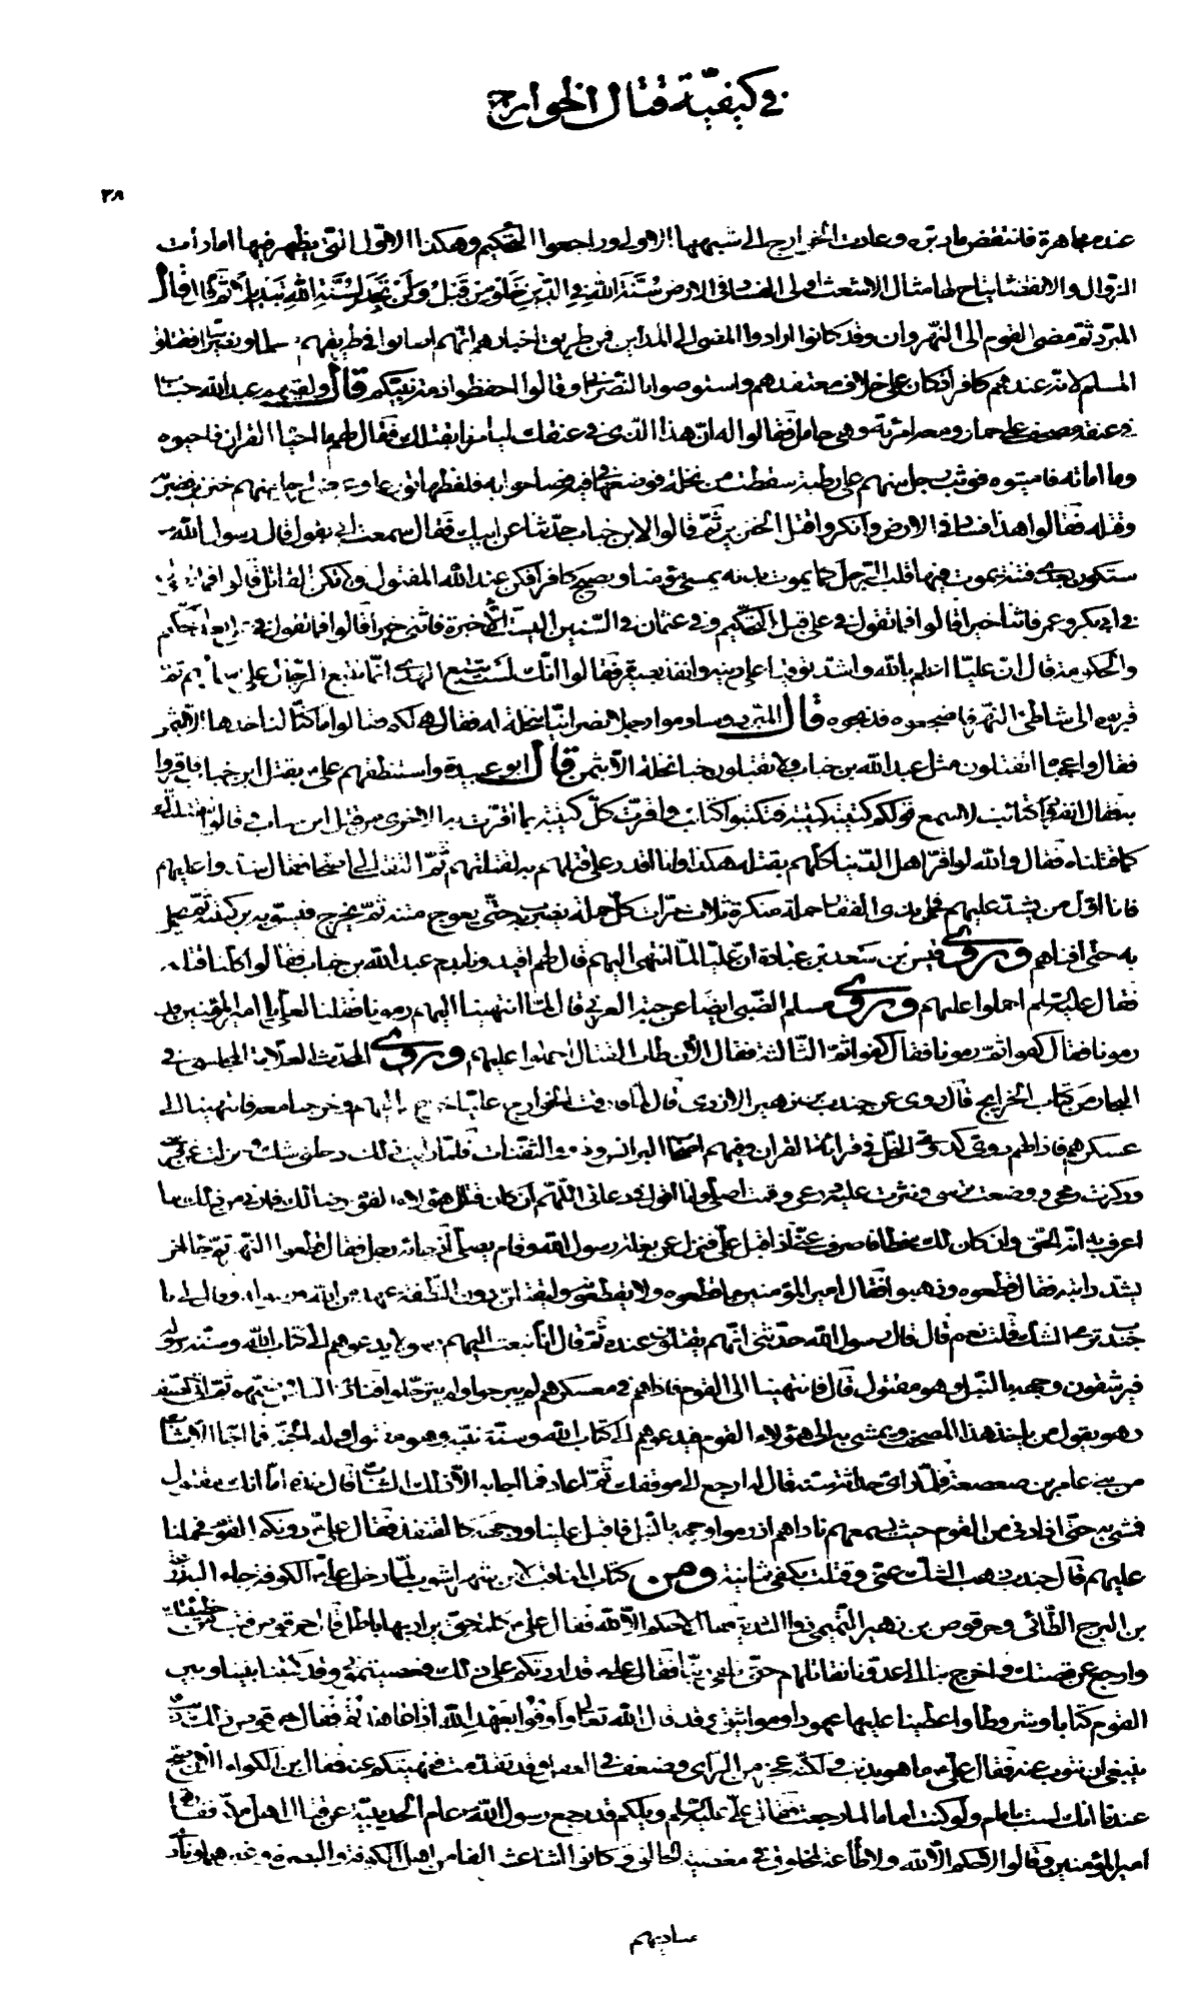 في كيفيّة قتال الخوارج
٣٨
عنده مجاهرة فانتقض ما دبّره وعادت الخوارج الى شبههما الاولى وراجعوا التحكيم وهكذا الاوّل التي يظهر فيها امارات
الزوال والانقضاء يتاح لها امثال الاشعث اولى الفساد في الارض سُنّة الله في الذين خلوا من قبل ولن تجد لسنة الله تبديلا ثم قال
المبرّد ثم مضى القوم الى النهروان وقد كانوا ارادوا المضى الى المداين فمن طريق اخبارهم انّهم اصابوا في طريقهم مسلما ونصرانيا فقتلوا
المسلم لانّه عندهم كافر اذ كان على خلاف معتقدهم واستوصوا بالنصراني وقالوا احفظوا ذمة نبيّكم قال ولقيهم عبد الله بن خباب
في عنقه مصحف على حمار ومعه امرأته وهي حامل فقالوا له انّ هذا الذي في عنقك ليأمرنا بقتلك فقال لهم ما احيا القرآن فاحيوه
وما اماته فاميتوه فوثب رجل منهم على رطبة سقطت من نخلة فوضعها في فيه فصاحوا به فلفظها تورعا وعرض لرجل منهم خنزير فضربه
وقتله فقالوا هذا فساد في الارض وانكروا قتل الخنزير ثمّ قالوا لابن خباب حدّثنا عن ابيك فقال سمعت ابي يقول قال رسول الله
ستكون بعدي فتنة يموت فيها قلب الرجل كما يموت بدنه يمسي مؤمنا ويصبح كافرا فكن عند الله المقتول ولا تكن القاتل قالوا فما تقول
في ابي بكر وعمر فاثنى خيرا قالوا فما تقول في علي قبل التحكيم وفي عثمان في السّنين الست الاخيرة فاثنى خيرا قالوا فما تقول في علي بعد التحكيم
والحكومة قال انّ عليّا اعلم بالله واشدّ توقيا على دينه وانفذ بصيرة فقالوا انّك لست تتبع الهدى انّما تتبع الرجال على اسمائهم ثم
قربوه الى شاطئ النهر فاضجعوه فذبحوه قال المبرّد وساوموا رجلا نصرانيّا بنخلة له فقال هي لكم فقالوا ما كنّا لناخذها الّا بثمن
فقال واعجباه اتقتلون مثل عبد الله بن خباب ولا تقبلون جنا نخلة الّا بثمن قال ابو عبيدة واستنطقهم علي ع بقتل ابن خباب فاقروا
به فقال انفردوا كتائب لاسمع قولكم كتيبة كتيبة فتكتبوا كتائب واقرّت كلّ كتيبة بما اقرّت به الاخرى من قتل ابن خباب وقالوا لنقتلنّك
كما قتلناه فقال والله لو اقرّ اهل الدّنيا كلّهم بقتله هكذا وانا اقدر على قتلهم به لقتلتهم ثمّ التفت الى اصحابه فقال شدّوا عليهم
فانا اوّل من يشدّ عليهم فحمل بذي الفقار حملة منكرة ثلاث مرّات كلّ حملة يضرب به حتّى يعوج متنه ثمّ يخرج فيسوّيه بركبته ثمّ يحمل
به حتّى افناهم وروى قيس بن سعد بن عبادة انّ عليّا لمّا انتهى اليهم قال لهم اقيدونا بدم عبد الله بن خباب فقالوا كلّنا قتله
فقال عليه السّلم احملوا عليهم وروى مسلم الضّبي ايضا عن حبّة العرني قال لمّا انتهينا اليهم رمونا فقلنا لعلي يا امير المؤمنين قد
رمونا فقال كفوا ثمّ رمونا فقال كفوا ثمّ الثّالثة فقال الآن طاب القتال احملوا عليهم وروى المحدّث العلّامة المجلسي في
البحار من كتاب الخرايج قال روى عن جندب بن زهير الازدي قال لمّا فارقت الخوارج عليّا خرج اليهم وخرجنا معه فانتهينا الى
عسكرهم فاذا لهم دوى كدوي النحل في قراءة القرآن وفيهم اصحاب البرانس وذوو الثفنات فلمّا رأيت ذلك دخلني شك
وركزت رمحي ووضعت ترسي ونثرت عليه درعي وقمت اصلّي وانا اقول في دعائي اللّهم ان كان قتال هؤلاء القوم رضا لك فارني من ذلك ما
اعرف به انّه الحق وان كان لك سخطا فاصرف عنّي اذ اقبل علي فنزل عن بغلة رسول الله وقام يصلّي اذ جاءه رجل فقال قطعوا النهر ثمّ جاء آخر
يشتد دابته فقال قطعوه وذهبوا فقال امير المؤمنين ما قطعوه ولا يقطعونه وليقتلنّ دون النطفة عهد من الله ورسوله وقال لي يا
جندب ترى الشك قلت نعم قال قال رسول الله حدّثني انّهم يقتلون عنده ثمّ قال انّا نبعث اليهم رسولا يدعوهم الى كتاب الله وسنّة رسوله
فيرشقون وجهه بالنبل وهو مقتول قال فانتهينا الى القوم فاذا هم في معسكرهم لم يبرحوا ولم يترحّلوا فنادى الناس
وهو يقول من يأخذ هذا المصحف ويمشي به الى هؤلاء القوم فيدعوهم الى كتاب الله وسنّة نبيّه وهو مقتول وله الجنّة فما اجابه الّا شاب
من بني عامر بن صعصعة فلمّا رأى حداثة سنّه قال له ارجع الى موقفك ثمّ اعاد فما اجابه الّا ذلك الشاب قال خذه امّا انّك مقتول
فمشى به حتّى اذا دنى من القوم حيث يسمعهم ناداهم اذ رموا وجهه بالنبل فاقبل علينا ووجهه كالقنفذ فقال علي ع دونكم القوم فحملنا
عليهم قال جندب ذهب الشك عنّي وقتلت بكفي ثمانية ومن كتاب المناقب لابن شهر اشوب لمّا دخل علي ع الكوفة جاء اليه زرعة
بن البرج الطّائي وحرقوص بن زهير التّميمي ذو الثدية فقالا لا حكم الّا لله فقال علي ع كلمة حقّ يراد بها باطل قال حرقوص فتب من خطيئتك
وارجع عن قصتك واخرج بنا الى عدوّنا نقاتلهم حتّى نلقى ربّنا فقال علي ع قد اردتكم على ذلك فعصيتموني وقد كتبنا بيننا وبين
القوم كتابا وشروطا واعطينا عليها عهودا ومواثيق وقد قال الله تعالى واوفوا بعهد الله اذا عاهدتم فقال حرقوص ذلك ذنب
ينبغي ان نتوب عنه فقال علي ع ما هو ذنب ولكنّه عجز من الرّأي وضعف في العقل وقد تقدّمت فنهيتكم عنه فقال ابن الكواء الآن صحّ
عندنا انّك لست بامام ولو كنت اماما لما رجعت فقال علي عليه السّلم ويلكم قد رجع رسول الله عام الحديبيّة عن قتال اهل مكّة ففارقوا
امير المؤمنين وقالوا لا حكم الّا لله ولا طاعة لمخلوق في معصية الخالق وكانوا اثنا عشر الفا من اهل الكوفة والبصرة وغيرهما ونادى
مناديهم